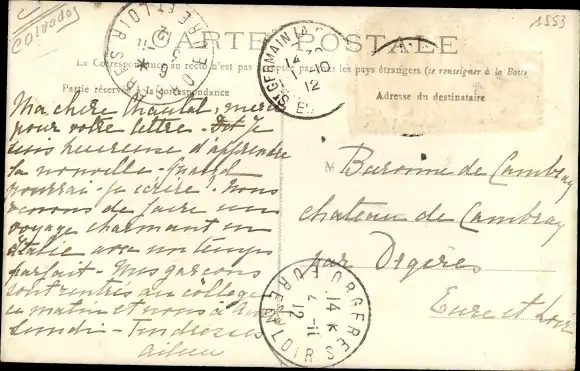 Calvados
1553
CARTE POSTALE
La Correspondance au recto n'est pas acceptée par tous les pays étrangers (se renseigner à la Poste
Partie réservée à la Correspondance
Adresse du destinataire
Ma chère Chantal, merci
pour votre lettre - Je
suis heureuse d'apprendre
la nouvelle - Quand
pourrai-je écrire? Nous
venons de faire un
voyage charmant en
Italie avec un temps
parfait - Mes garçons
sont rentrés au collège
ce matin et nous à
Lundi - Tendresses
M Baronne de Cambray
chateau de Cambray
par Orgères
Eure et Loir
ST GERMAIN
14
10
12
ORGERES
EURE ET LOIR
14 K
4 - 11
12